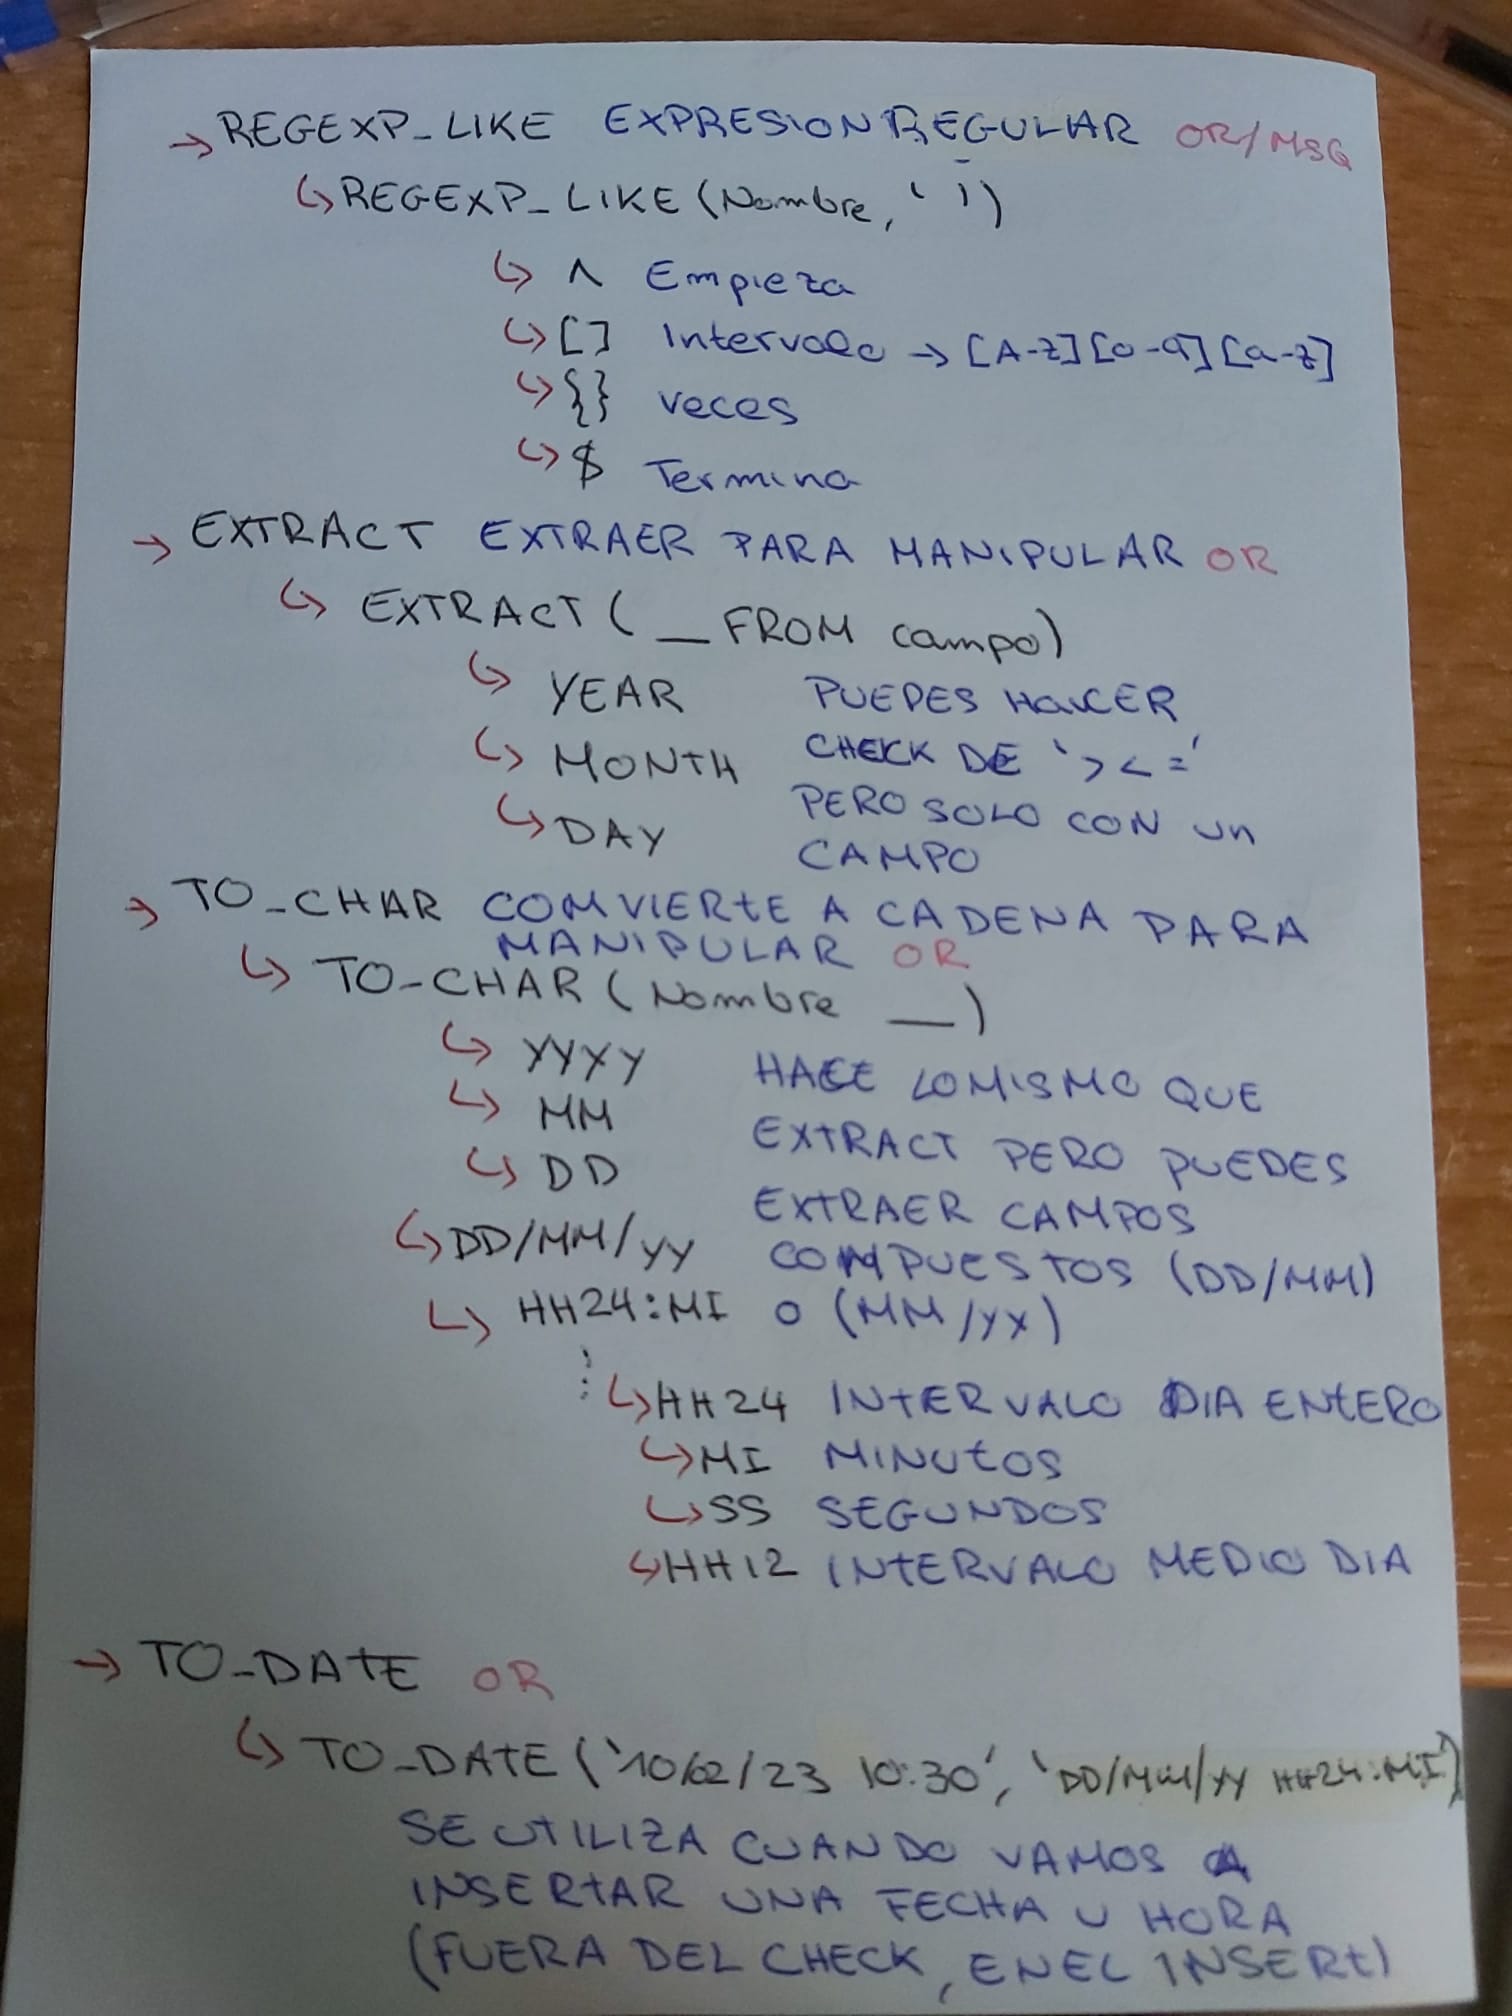 → REGEXP_LIKE EXPRESION REGULAR OR/MSQ
↳ REGEXP_LIKE (Nombre, ' ')
↳ ^ Empieza
↳ [] Intervalo → [A-Z][0-9][a-z]
↳ {} veces
↳ $ Termina
→ EXTRACT EXTRAER PARA MANIPULAR OR
↳ EXTRACT ( _ FROM campo)
↳ YEAR PUEDES HACER
↳ MONTH CHECK DE '> < ='
PERO SOLO CON un
↳ DAY CAMPO
→ TO_CHAR COMVIERTE A CADENA PARA
MANIPULAR OR
↳ TO-CHAR (Nombre __ )
↳ YYYY HACE LO MISMO QUE
↳ MM EXTRACT PERO PUEDES
↳ DD EXTRAER CAMPOS
↳ DD/MM/YY COMPUESTOS (DD/MM)
↳ HH24:MI O (MM/YY)
↳ HH24 INTERVALO DIA ENTERO
↳ MI MINUTOS
↳ SS SEGUNDOS
↳ HH12 INTERVALO MEDIO DIA
→ TO_DATE OR
↳ TO_DATE ('10/02/23 10:30', 'DD/MM/YY HH24:MI')
SE UTILIZA CUANDO VAMOS A
INSERTAR UNA FECHA U HORA
(FUERA DEL CHECK, EN EL INSERT)